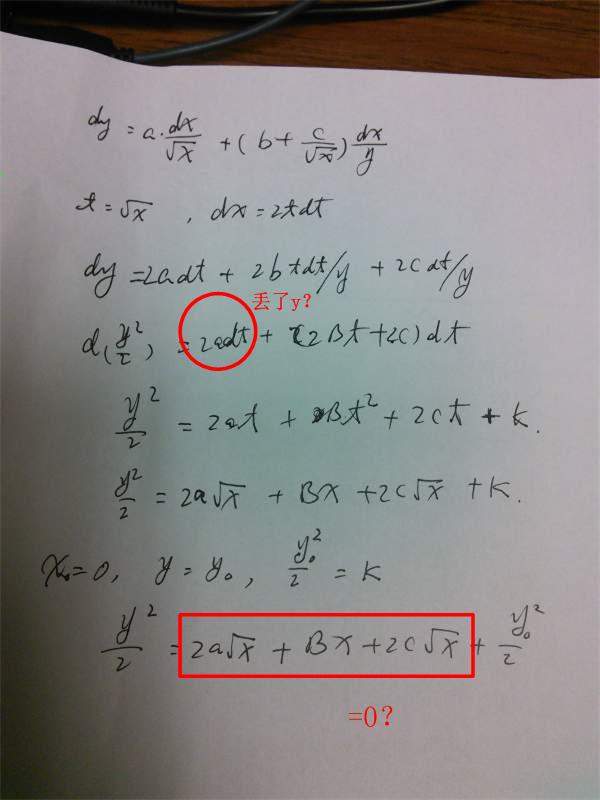 dy = a·dx/√x + (b + c/√x) dx/y
t = √x , dx = 2tdt
dy = 2adt + 2btdt/y + 2cdt/y
丢了y?
d(y²/2) = 2adt + (2Bt+2c)dt
y²/2 = 2at + Bt² + 2ct + k.
y²/2 = 2a√x + Bx + 2c√x + k.
x₀=0, y=y₀, y₀²/2 = k
y²/2 = 2a√x + Bx + 2c√x + y₀²/2
=0?